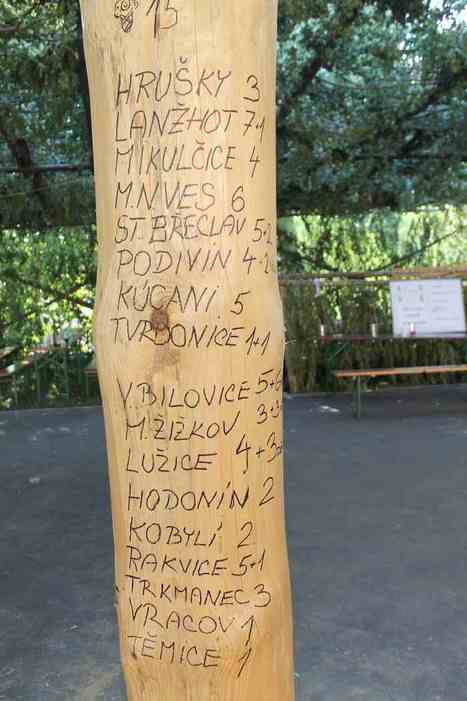 15
HRUŠKY 3
LANŽHOT 7+1
MIKULČICE 4
M.N.VES 6
ST. BŘECLAV 5+2
PODIVÍN 4+2
KÚCANI 5
TVRDONICE 1+1
V. BILOVICE 5+6
M. ŽIŽKOV 3+3
LUŽICE 4+3+
HODONÍN 2
KOBYLÍ 2
RAKVICE 5+1
TRKMANEC 3
VRACOV 1
TĚMICE 1